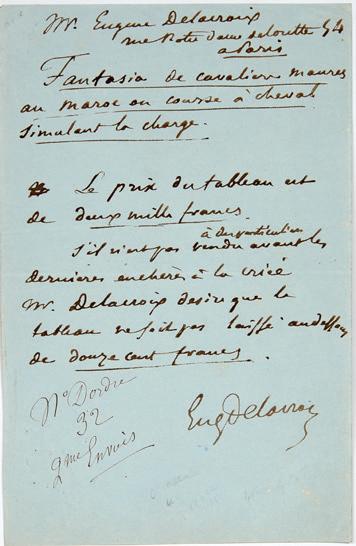 Mr. Eugène Delacroix
rue Notre dame delorette 54
a Paris
Fantasia de cavaliers maures
au maroc ou course à cheval
simulant la charge.
Le prix du tableau est
de deux mille francs.
à des particuliers
S'il n'est pas vendu avant les
dernieres enchères à la criée
Mr. Delacroix desire que le
tableau ne soit pas laissé au dessous
de douze cent francs.
No Dordre
32
2me Envois
Eug Delacroix